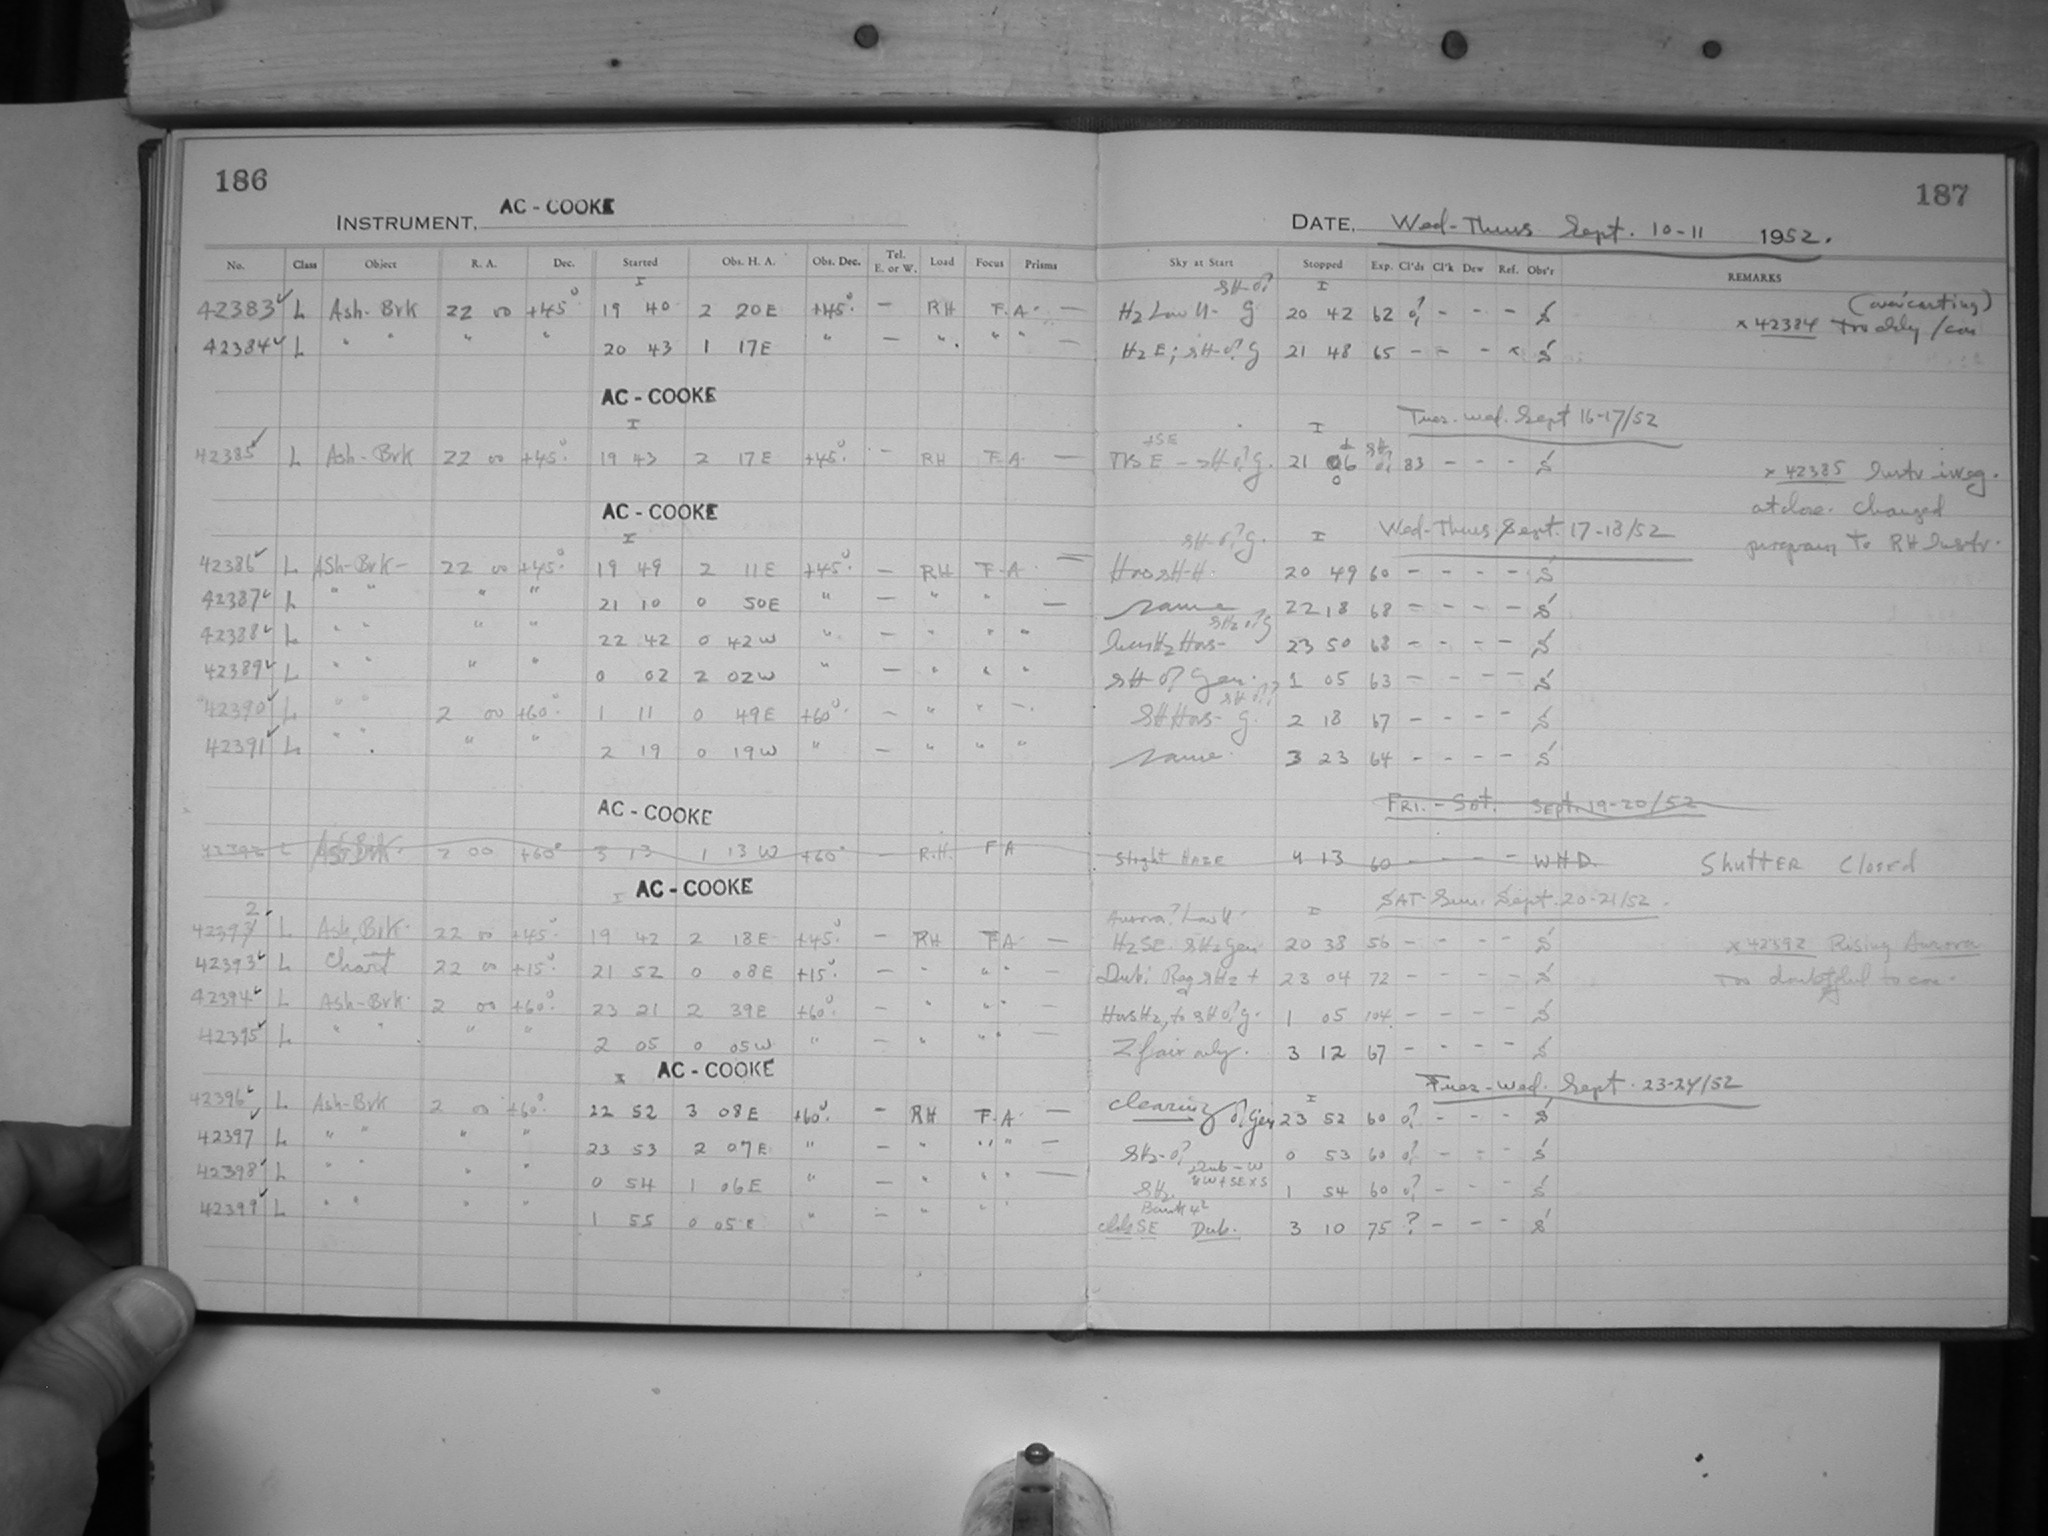 186
187
INSTRUMENT, AC - COOKE
DATE, Wed-Thurs Sept. 10-11 1952.
No. Class Object R. A. Dec. Started Obs. H. A. Obs. Dec. Tel. E. or W. Load Focus Prisms Sky at Start Stopped Exp. Cl'ds Cl'k Dew Ref. Obs'r REMARKS
42383 L Ash-Brk 22 00 +45° 19 40 2 20E +45° - RH F.A. - 20 42 62 - - -
42384 L " " " " 20 43 1 17E " - " " " - 21 48 65 - - - x x 42384
AC - COOKE
Tues. Wed. Sept 16-17/52
42385 L Ash-Brk 22 00 +45° 19 43 2 17E +45° - RH F A - 21 06 83 - - - x 42385 Instr irreg.
at close. Changed
program to RH Instr.
AC - COOKE
Wed-Thurs Sept. 17-18/52
42386 L Ash-Brk- 22 00 +45° 19 49 2 11E +45° - RH F-A - 20 49 60 - - - -
42387 L " " " " 21 10 0 50E " - " " - same 22 18 68 - - - -
42388 L " " " " 22 42 0 42W " - " " " 23 50 68 - - - -
42389 L " " " " 0 02 2 02W " - " " " 1 05 63 - - - -
42390 L " " 2 00 +60° 1 11 0 49E +60° - " " - 2 18 67 - - - -
42391 L " " " " 2 19 0 19W " - " " " same 3 23 64 - - - -
AC - COOKE
FRI. - Sat. Sept. 19-20/52
42392 L Ash-Brk. 2 00 +60° 3 13 1 13W +60° - R.H. F A Slight HAZE 4 13 60 - - - - WHD. Shutter Closed
AC - COOKE
SAT-Sun. Sept. 20-21/52
42392 L Ash-Brk. 22 00 +45° 19 42 2 18E +45° - RH F A - 20 38 56 - - - - x 42392 Rising Aurora
42393 L Chart 22 00 +15° 21 52 0 08E +15° - " " " - 23 04 72 - - - - Too doubtful to con.
42394 L Ash-Brk. 2 00 +60° 23 21 2 39E +60° - " " " - 1 05 104 - - - -
42395 L " " " " 2 05 0 05W " - " " " - Z fair only. 3 12 67 - - - -
AC - COOKE
Tues-Wed. Sept. 23-24/52
42396 L Ash-Brk 2 00 +60° 22 52 3 08E +60° - RH F.A. - clearing 23 52 60 - - -
42397 L " " " " 23 53 2 07E " - " " " - 0 53 60 - - -
42398 L " " " " 0 54 1 06E " - " " " - 1 54 60 - - -
42399 L " " " " 1 55 0 05E " - " " " 3 10 75 ? - - -